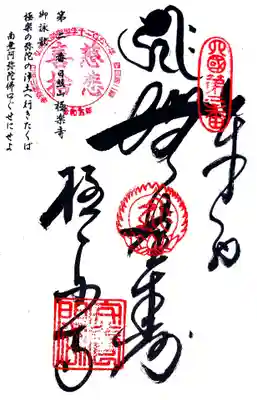 四國第二番
奉納
無量壽
極楽寺
慈悲
喜捨
第二番 日照山 極楽寺
御詠歌
極楽の弥陀の浄土へ行きたくば
南無阿弥陀佛口ぐせにせよ